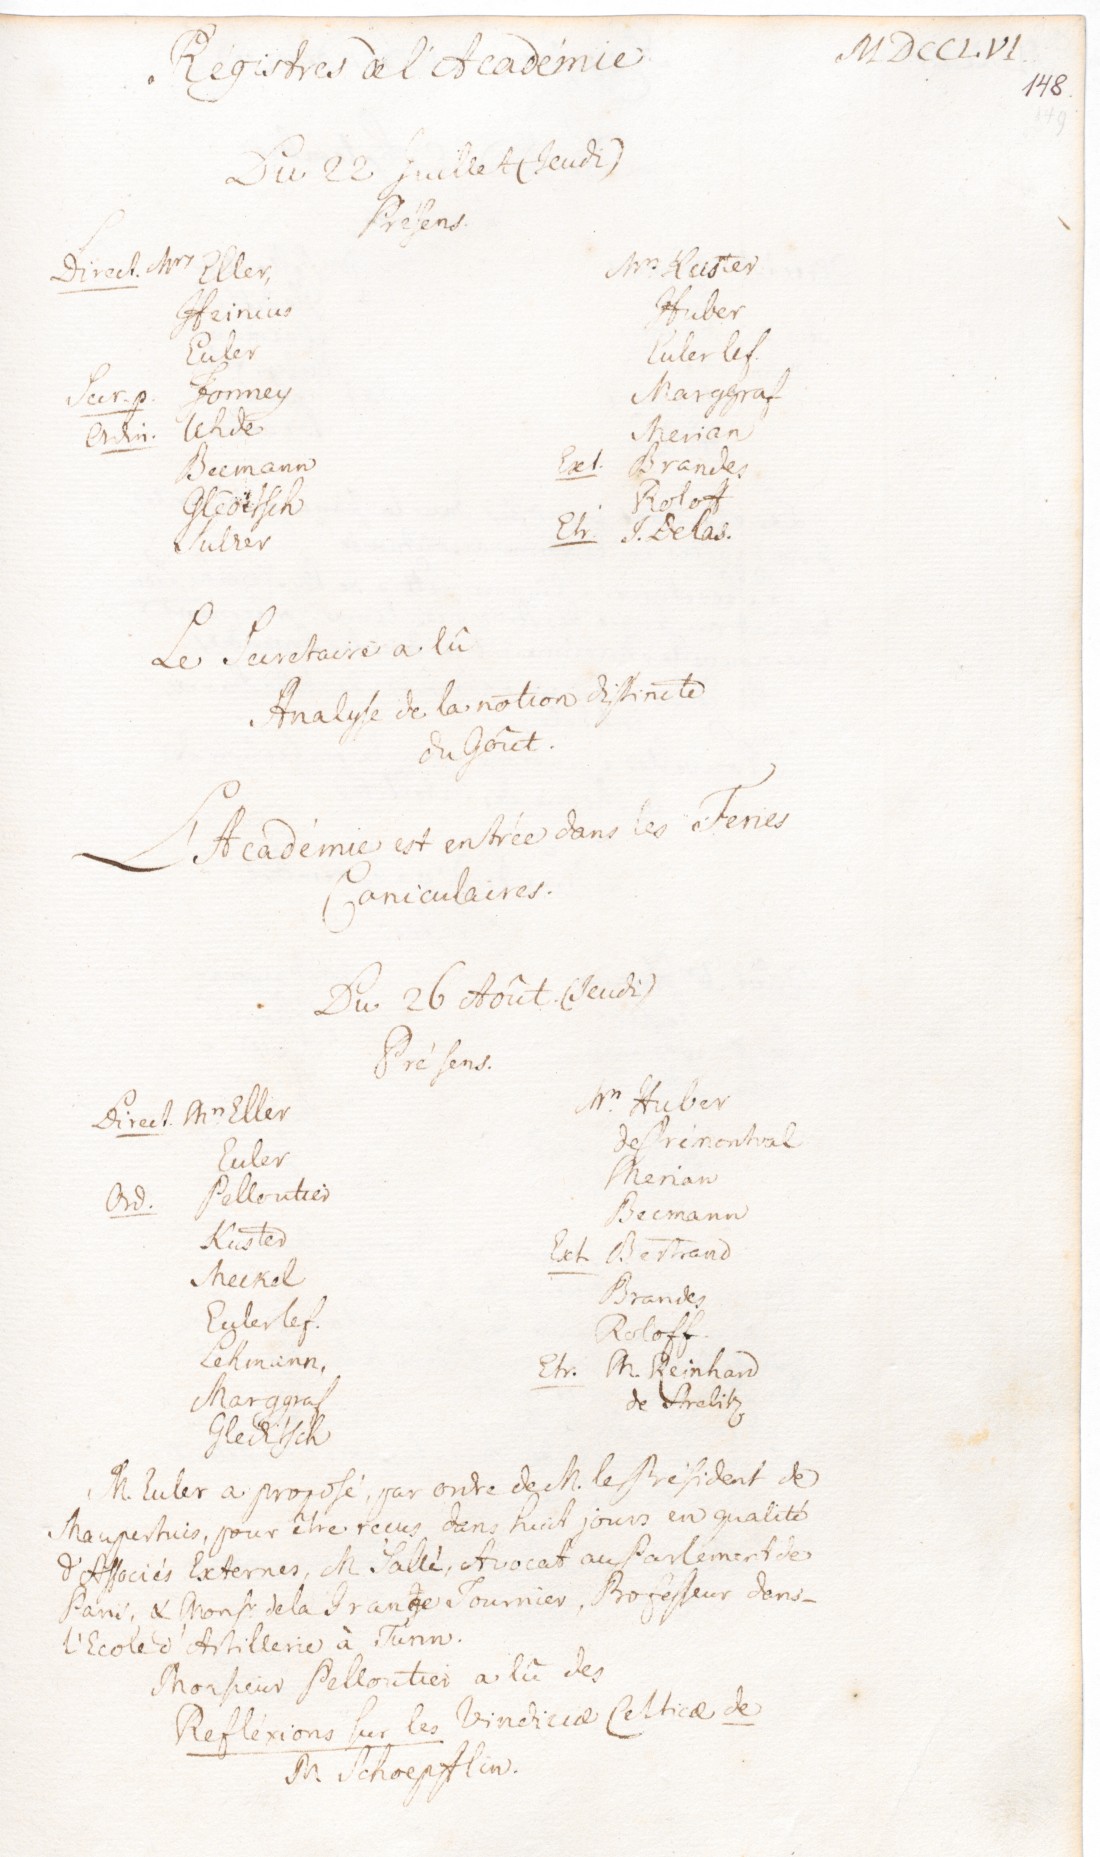 Régistres de l'Académie
MDCCLVI.
148.
149
Du 22 Juillet (Jeudi)
Présens.
Direct. Mrs Eller,
Heinius
Euler
Secr. p. Formey
Ordin. Uhde
Becmann
Gleditsch
Sulzer
Mrs Keister
Huber
Euler le f.
Marggraf
Merian
Ext. Brandes
Roloff
Etr. J. Delas.
Le Secretaire a lû
Analyse de la notion distincte
du Goût.
L'Académie est entrée dans les Feries
Caniculaires.
Du 26 Aoûst. (Jeudi)
Présens.
Direct. Mrs Eller
Euler
Ord. Pelloutier
Kuster
Meckel
Euler le f.
Lehmann,
Marggraf
Gleditsch
Mrs Huber
de Prémontval
Merian
Becmann
Ext. Bertrand
Brandes
Roloff.
Etr. M. Reinhard
de Strelitz
M. Euler a proposé, par ordre de M. le Président de
Maupertuis, pour être reçus dans huit jours en qualité
d'Associés Externes, M. Sallé, Avocat au Parlement de
Paris, & Monsr de la Grange Tournier, Professeur dans
l'Ecole d'Artillerie à Turin.
Monsieur Pelloutier a lû des
Refléxions sur les Vindiciæ Celticæ de
M. Schoepfflin.